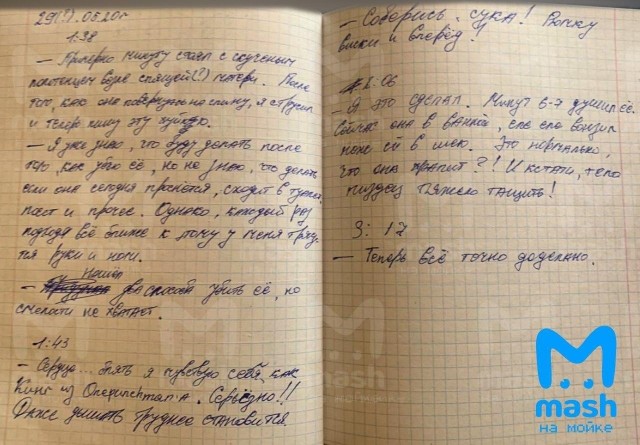 29(?).05.20г
1:38
— Примерно минуту стоял с скученым
полотенцем возле спящей(?) матери. После
того, как она повернулась на спину, я струсил
и теперь пишу эту хуйню.
— Я уже знаю, что буду делать после
того, как убью её, но не знаю, что делать
если она сегодня проснётся, сходит в туалет,
поест и прочее. Однако, каждый раз
подходя всё ближе к этому у меня трясу-
тся руки и ноги.
Нашёл
— два способа убить её, но
смелости не хватает.
1:43
— Сердце... блять я чувствую себя, как
Кинг из Onepunchman'а. Серьёзно!!
Даже дышать труднее становится.
— Соберись, сука! Рюмку
виски и вперёд!
2:06
— Я это сделал. Минут 6-7 душил её.
Сейчас она в ванной, еле его вонзил
нож ей в шею. Это нормально,
что она храпит?! И кстати, тело
пиздец тяжело тащить!
3:17
— Теперь всё точно доделано.
mash
на мойке